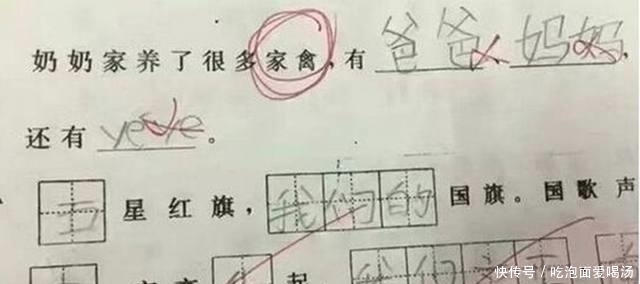 奶奶家养了很多家禽,有爸爸、妈妈,
还有yeye。
五星红旗,我们的国旗。国歌声
起
快传号/吃泡面爱喝汤